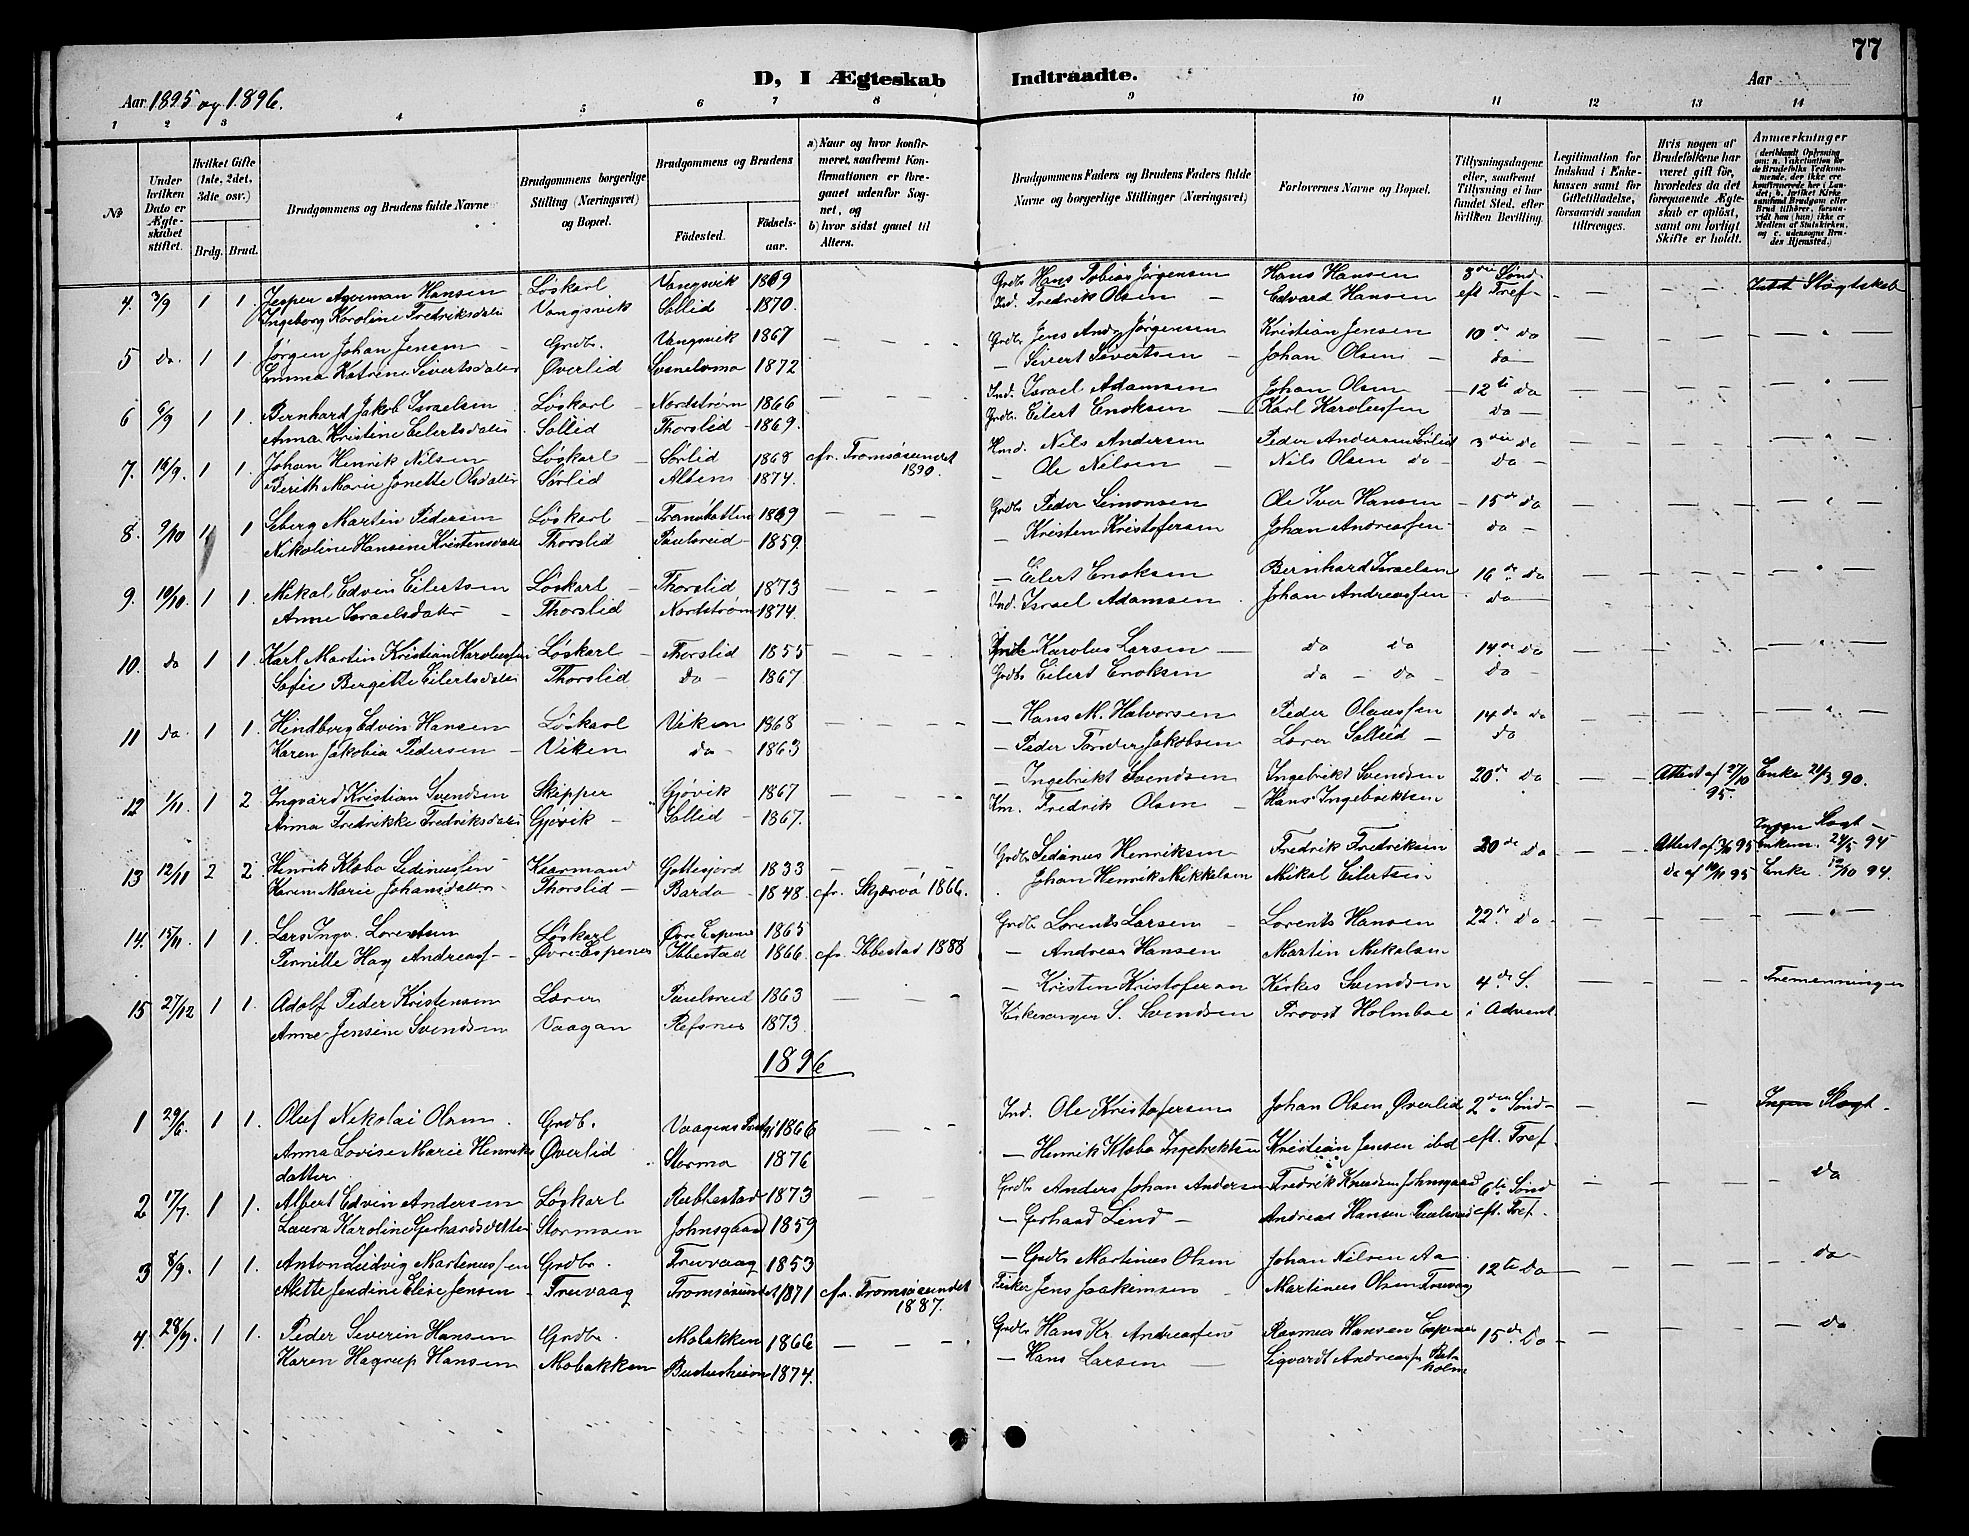 77
D, I Ægteskab Indtraadte.
Aar 1895 og 1896. Aar
1 2 3 4 5 6 7 8 9 10 11 12 13 14
No
Under hvilken Dato er Ægteskabet stiftet.
Hvilket Gifte (1ste, 2det, 3die osv.)
Brdg. Brud.
Brudgommens og Brudens fulde Navne
Brudgommens borgerlige Stilling (Næringsvei) og Bopæl.
Brudgommens og Brudens
Födested. Födselsaar.
a) Naar og hvor konfirmeret, saafremt Konfirmationen er foregaaet udenfor Sognet, og
b) hvor sidst gaaet til Alters.
Brudgommens Faders og Brudens Faders fulde Navne og borgerlige Stillinger (Næringsvei)
Forlovernes Navne og Bopæl.
Tillysningsdagene eller, saafremt Tillysning ei har fundet Sted, efter hvilken Bevilling.
Legitimation for Indskud i Enkekassen samt for Giftetilladelse, forsaavidt saadan tiltrænges.
Hvis nogen af Brudefolkene har været gift för, hvorledes da det foregaaende Ægteskab er oplöst, samt om lovligt Skifte er holdt.
Anmærkninger
4. 3/9 1 1. Jesper Agerman Hansen Löskarl Vangsvik 1869 Grdb Hans Tobias Jörgensen Hans Hansen 3die Sönd
Ingeborg Karoline Fredriksdatter Vangsvik Sollid 1870. Ind. Fredrik Olsen Edvard Hansen eft Tref Slægtskab
5 do. 1 1. Jörgen Johan Jensen Grdb. Vangsvik 1867 Grdb Jens Andr Jörgensen Kristian Jensen 10de do
Emma Katrine Sivertsdatter Överlid 1872 Sivert Sivertsen Johan Olsen do
6 6/9 1 1. Bernhard Jakob Israelsen Löskarl Nordström 1866 Ind. Israel Adamsen Johan Olsen 12te do
Anna Kristine Eilertsdatter Sollid Thorslid 1869. Grdb. Eilert Enoksen Karl Karolussen do
7. 1 1. Johan Henrik Nilsen Löskarl Sörlid 1868 cfr. Tromsösundet Nils Andersen Peder Andersen Sörlid 3die do
Berith Marie Jonette Olsdatter Sörlid Alten 1874. 1890. Ole Nilsen Nils Olsen do do
8. 9/10 1 1 Seberg Martin Pedersen Löskarl 1869 Grdb Peder Simonsen Ole Iver Hansen 15de do
Nikoline Hansine Kristensdatter Thorslid Paulsrud 1859. Kristen Kristofersen Johan Andreassen do
9. 10/10. 1 1. Mikal Edvin Eilertsen Löskarl Thorslid 1873 Eilert Enoksen Bernhard Israelsen 16de do
Anne Israelsdatter Thorslid Nordström 1874. Ind. Israel Adamsen Johan Andreassen do
10. do 1 1. Karl Martin Kristian Karolussen Löskarl Thorslid 1855 Karolus Larsen do do 14de do
Sofie Bergette Eilertsdatter Thorslid do 1867 Grdb Eilert Enoksen do do do
11 do 1 1. Hindberg Edvin Hansen Löskarl Viken 1868 Hans M. Halvorsen Peder Olaussen 14de do
Karen Jakobia Pedersen Viken do 1863 Peder Jakobsen Lærer Sollid do
12 1/11 1 2 Ingvard Kristian Svendsen Skipper Gjövik 1867 Ingebrikt Svendsen Ingebrikt Svendsen 20de do Attest af 27/10 95. Enke 21/3 90.
Anna Fredrikke Fredriksdatter Gjövik Sollid 1867. Fredrik Olsen Hans Ingebriktsen
13 12/11 2 2. Henrik Klæbo Kaarmand Gottesjord 1833 Grdb Henriksen Fredrik Fredriksen 20de do Attest af 95 Enkem. 24/5 94
Karen Marie Johansdatter Thorslid Bardo 1848. cfr. Skjærvö 1866. Johan Henrik Mikkelsen Mikal Eilertsen do af 95 Enke 10/10 94.
14. 15/11 1 1. Lars Ingv. Lorentsen Löskarl Övre Espenes 1865 Grdb Lorents Larsen Lorents Hansen 22de do
Pernille Hag Andreas Övre Espenes Ibbestad 1866. cfr. Ibbestad 1888 Andreas Hansen Martin Mikalsen
15 27/12 1 1. Adolf Peder Kristensen Lærer Paulsrud 1863 Kristen Kristofersen Kirkes Svendsen 4de S. Tremenninger
Anne Jensine Svendsen Vaagan Refsnes 1873. Kirkesanger S. Svendsen Provst Holmboe i Advent
1896
1 29/6. 1 1. Oluf Nikolai Olsen Grdb. 1866 Ind. Ole Kristofersen Johan Olsen Överlid 2den Sönd Ingen Slægt.
Anna Lovise Marie Henriks Överlid Stormo 1876 Henrik Klæbo Ingebrektsen Kristian Jensen ibd eft. Tref
datter
2 17/7. 1 1. Albert Edvin Andersen Löskarl Rubbestad 1873 Grdb Anders Johan Andersen Fredrik Knudsen Johnsgaard 6te Sönd do
Laura Karoline Gerhardsdatter Stormoen Johnsgaard 1859 Gerhard Lind Andreas Hansen Paulsrud eft. Tref.
3 8/9. 1 1. Anton Ludvig Martinussen Grdbr. Truvaag 1853 Grdb Martinus Olsen Johan Nilsen Aa 12te do do
Mette Jendine Elise Jensen Truvaag Tromsösundet 1871 cfr. Tromsösundet Fisker Jens Joakimsen Martinus Olsen Truvaag
1887.
4. 28/9. 1 1. Peder Severin Hansen Grdbr. Mobakken 1866 Grdb Hans Kr. Andreassen Rasmus Hansen Espenes 15de do do
Karen Hagrup Hansen Mobakken 1874. Hans Larsen Sigvardt Andreassen